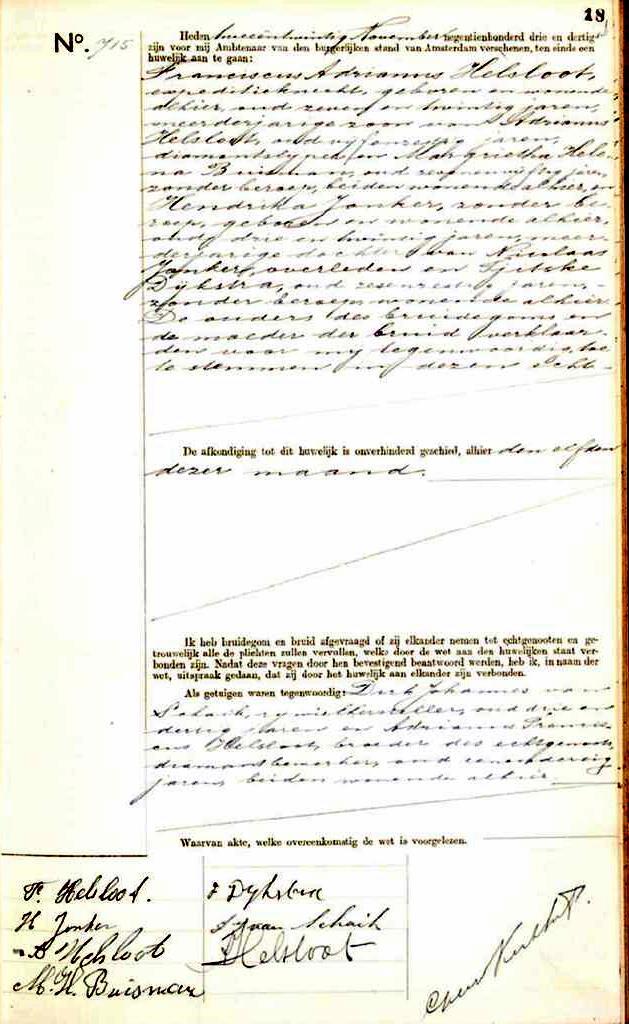 18
Nº. 715
Heden tweeëntwintig November negentienhonderd drie en dertig
zijn voor mij Ambtenaar van den burgerlijken stand van Amsterdam verschenen, ten einde een
huwelijk aan te gaan:
Franciscus Adrianus Helsloot,
expeditieknecht, geboren en wonende
alhier, oud zeven en twintig jaren,
meerderjarige zoon van Adrianus
Helsloot, oud jaren,
diamantslyper, en Margrietha Hele-
na Buisman, oud jaren,
zonder beroep, beiden wonende alhier, en
Hendrika Jonker, zonder be-
roep, geboren en wonende alhier,
oud drie en twintig jaren, meer-
derjarige dochter van Nicolaas
Jonker, overleden en Sjitske
Dijkstra, oud jaren,
zonder beroep, wonende alhier.
De ouders des bruidegoms en
de moeder der bruid verklaar-
den voor my tegenwoordig, toe
te stemmen in dezen echt.
De afkondiging tot dit huwelijk is onverhinderd geschied, alhier den elfden
dezer maand.
Ik heb bruidegom en bruid afgevraagd of zij elkander nemen tot echtgenooten en ge-
trouwelijk alle de plichten zullen vervullen, welke door de wet aan den huwelijken staat ver-
bonden zijn. Nadat deze vragen door hen bevestigend beantwoord werden, heb ik, in naam der
wet, uitspraak gedaan, dat zij door het huwelijk aan elkander zijn verbonden.
Als getuigen waren tegenwoordig: Dirk Johannes van
Schaik, rywielhersteller, oud drie en
dertig jaren en Adrianus Francis-
cus Helsloot, broeder des echtgenoots,
diamantbewerker, oud eenendertig
jaren, beiden wonende alhier.
Waarvan akte, welke overeenkomstig de wet is voorgelezen.
F. Helsloot.
H Jonker
A Helsloot
M. H. Buisman
Dijkstra
van Schaik
Helsloot